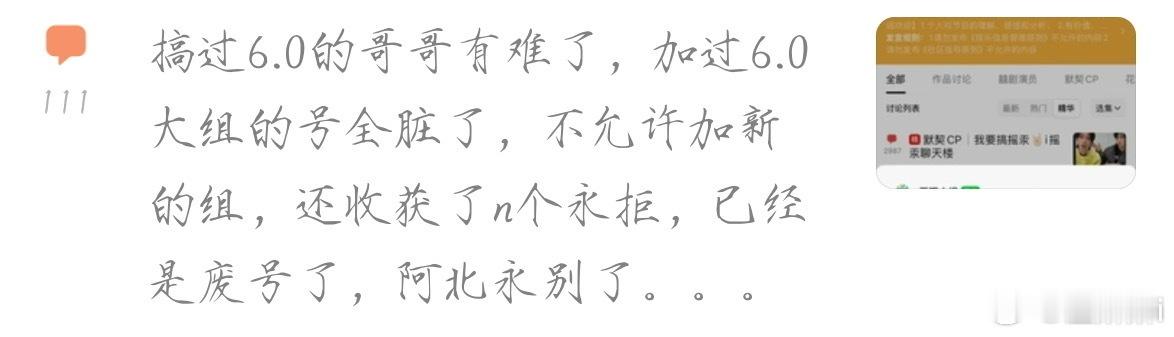 搞过6.0的哥哥有难了，加过6.0
大组的号全脏了，不允许加新
的组，还收获了n个永拒，已经
是废号了，阿北永别了。。。
111
全部 作品讨论 囍剧演员 默契CP 花
讨论列表 最新 热门 精华 选集
默契CP｜我要搞摇汞🤘i摇
汞聊天楼
2987